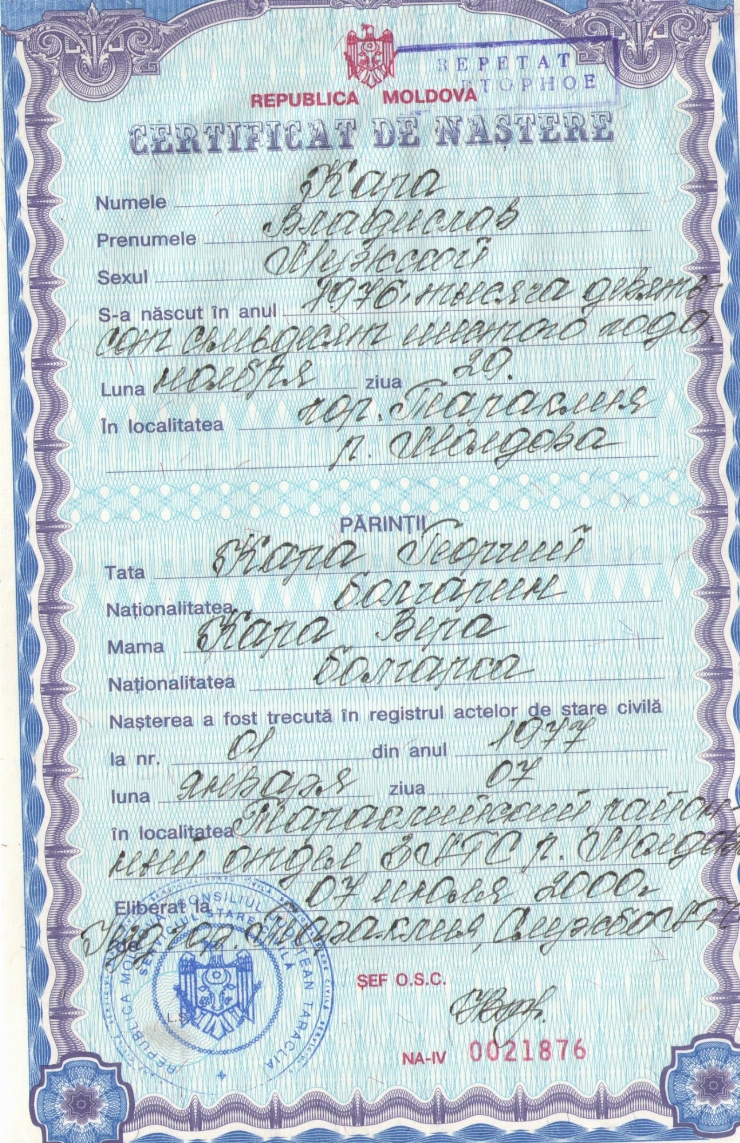 REPETAT
ТОРНОЕ
REPUBLICA MOLDOVA
CERTIFICAT DE NAȘTERE
Numele Кара
Prenumele Владислав
Sexul Мужской
S-a născut în anul 1976 тысяча девять-
сот семьдесят шестого года
Luna ноября ziua 29.
În localitatea гор. Тараклия
р. Молдова
PĂRINȚII
Tata Кара Георгий
Naționalitatea болгарин
Mama Кара Вера
Naționalitatea болгарка
Nașterea a fost trecută în registrul actelor de stare civilă
la nr. 01 din anul 1977
luna января ziua 07
în localitatea Тараклийский район-
ный отдел ЗАГС р. Молдова
Eliberat la 07 июля 2000г
гор. Тараклия, Служба
ȘEF O.S.C.
L.Ș.
NA-IV 0021876
REPUBLICA MOLDOVA CONSILIUL JUDEȚEAN TARACLIA
STARE CIVILĂ